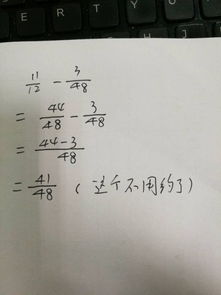 11/12 - 3/48
= 44/48 - 3/48
= 44-3/48
= 41/48 (这个不用约了)